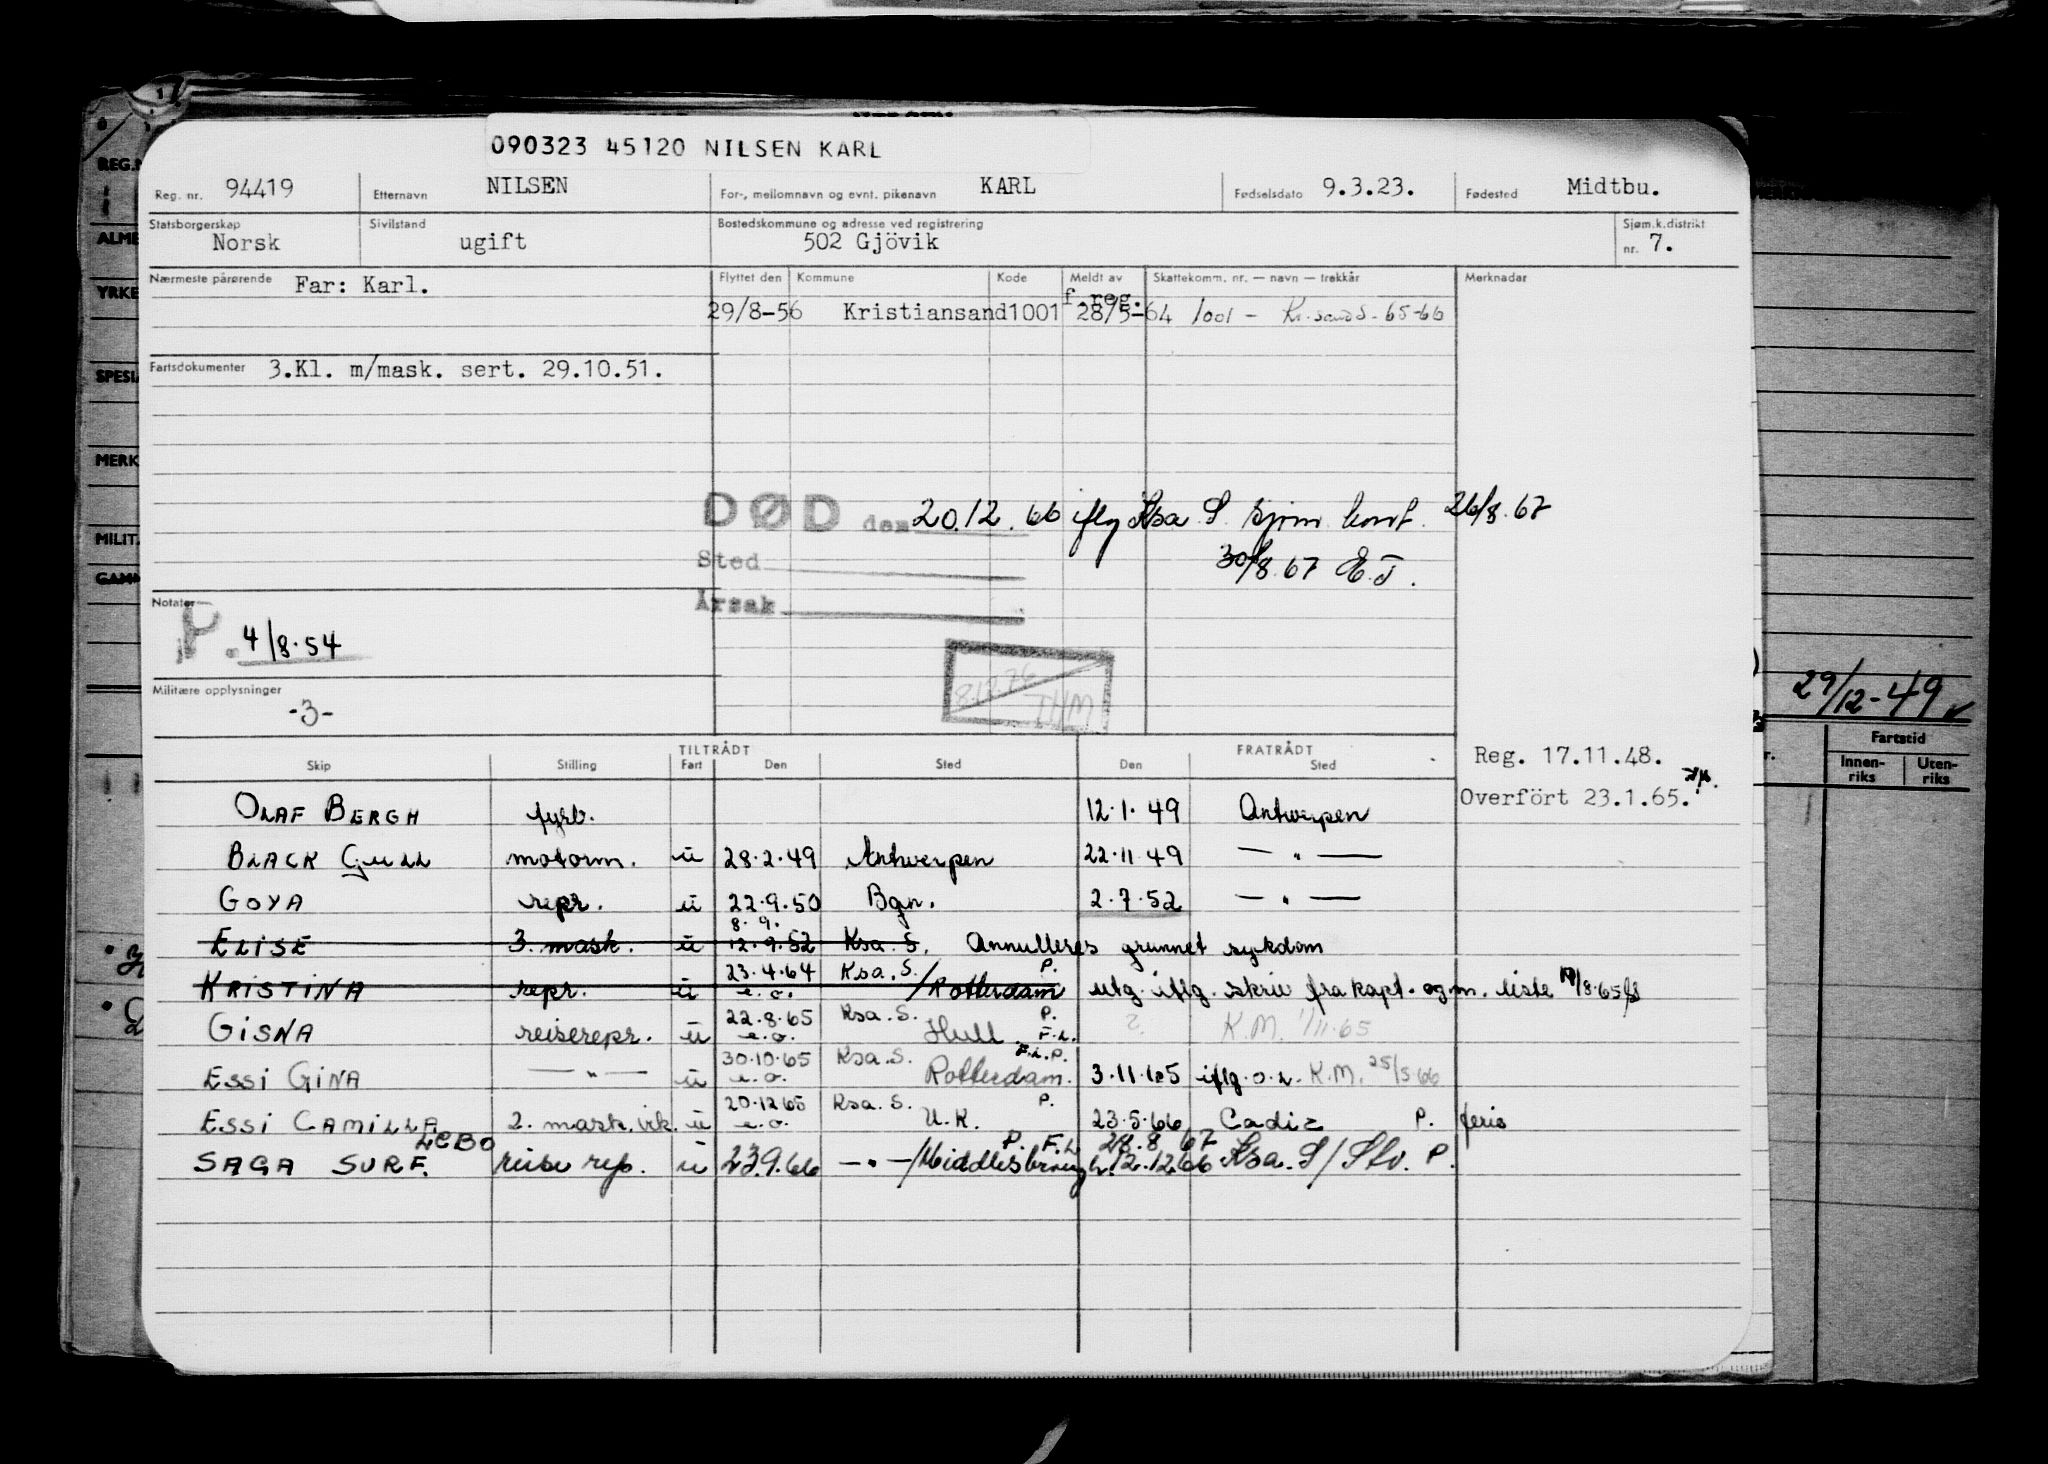 090323 45120 NILSEN KARL
Reg. nr. 94419 Etternavn NILSEN For-, mellomnavn og evnt. pikenavn KARL Fødselsdato 9.3.23. Fødested Midtbu.
Statsborgerskap Norsk Sivilstand ugift Bostedskommune og adresse ved registrering 502 Gjövik Sjøm.k.distrikt nr. 7.
Nærmeste pårørende Far: Karl. Flyttet den Kommune Kode Meldt av Skattekomm. nr. — navn — trekkår Merknader
f.reg.
29/8-56 Kristiansand 1001 28/5-64 1001 - Kr.sand S - 65-66
Fartsdokumenter 3.Kl. m/mask. sert. 29.10.51.
DØD den 20.12.66 iflg Ksa. S. sjøm kont. 26/8.67
Sted 30/8.67 E.J.
Årsak
Notater
4/8.54
8.12.76
THM
Militære opplysninger
-3-
29/12-49
TILTRÅDT FRATRÅDT
Skip Stilling Fart Den Sted Den Sted
Reg. 17.11.48.
Overfört 23.1.65.
Fartstid
Innenriks Utenriks
OLAF BERGH fyrb. 12.1.49 Antwerpen
BLACK GULL motorm. u 28.2.49 Antwerpen 22.11.49 — " —
GOYA repr. u 22.9.50 Bgn. 2.7.52 — " —
8.9.
ELISE 3. mask. u 12.9.52 Ksa. S. Annulleres grunnet sykdom
23.4.64 Ksa. S. P.
KRISTINA repr. u e.o. /Rotterdam utg. iflg. skriv fra kapt. og m. liste 19/8.65
22.8.65 Ksa. S. P.
GISNA reiserepr. u e.o. Hull F.L. ? K.M. 1/11.65
30.10.65 Ksa. S. F.L.P.
ESSI GINA — " — u e.o. Rotterdam. 3.11.65 iflg. o.l. K.M. 25/5 66
20.12.65 Ksa. S. P.
ESSI CAMILLA 2. mask. vik. u e.o. U.K. 23.5.66 Cadiz P. ferie
SAGA SURF. reise rep. u 23.9.66 — " —/Middlesbrough P. F.L 12.12.66 Ksa. S/ P.
REG.N
ALME
YRKE
SPESIA
MERK
MILIT
GAMM